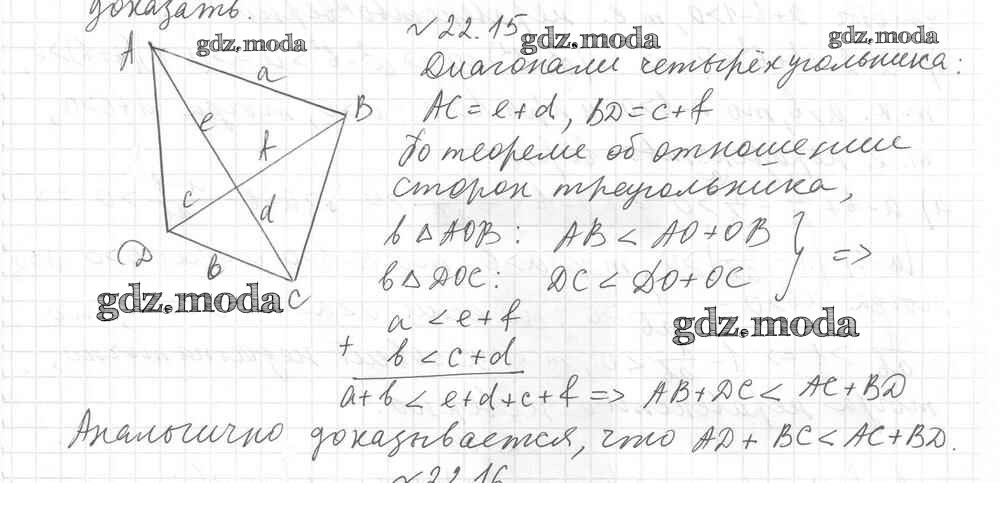 доказать.
№22.15
gdz.moda
gdz.moda
gdz.moda
Диагонали четырёхугольника:
AC = e+d, BD = c+f
По теореме об отношении
сторон треугольника,
в △AOB: AB < AO+OB
в △DOC: DC < DO+OC
} =>
A
a
B
e
f
c
d
D
b
C
gdz.moda
gdz.moda
a < e+f
+
b < c+d
a+b < e+d+c+f => AB+DC < AC+BD
Аналогично доказывается, что AD+BC<AC+BD.
№22.16